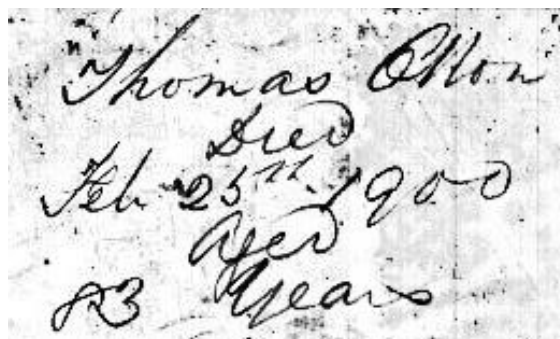 Thomas Otton
Died
Feb 25th 1900
Aged
83 Years